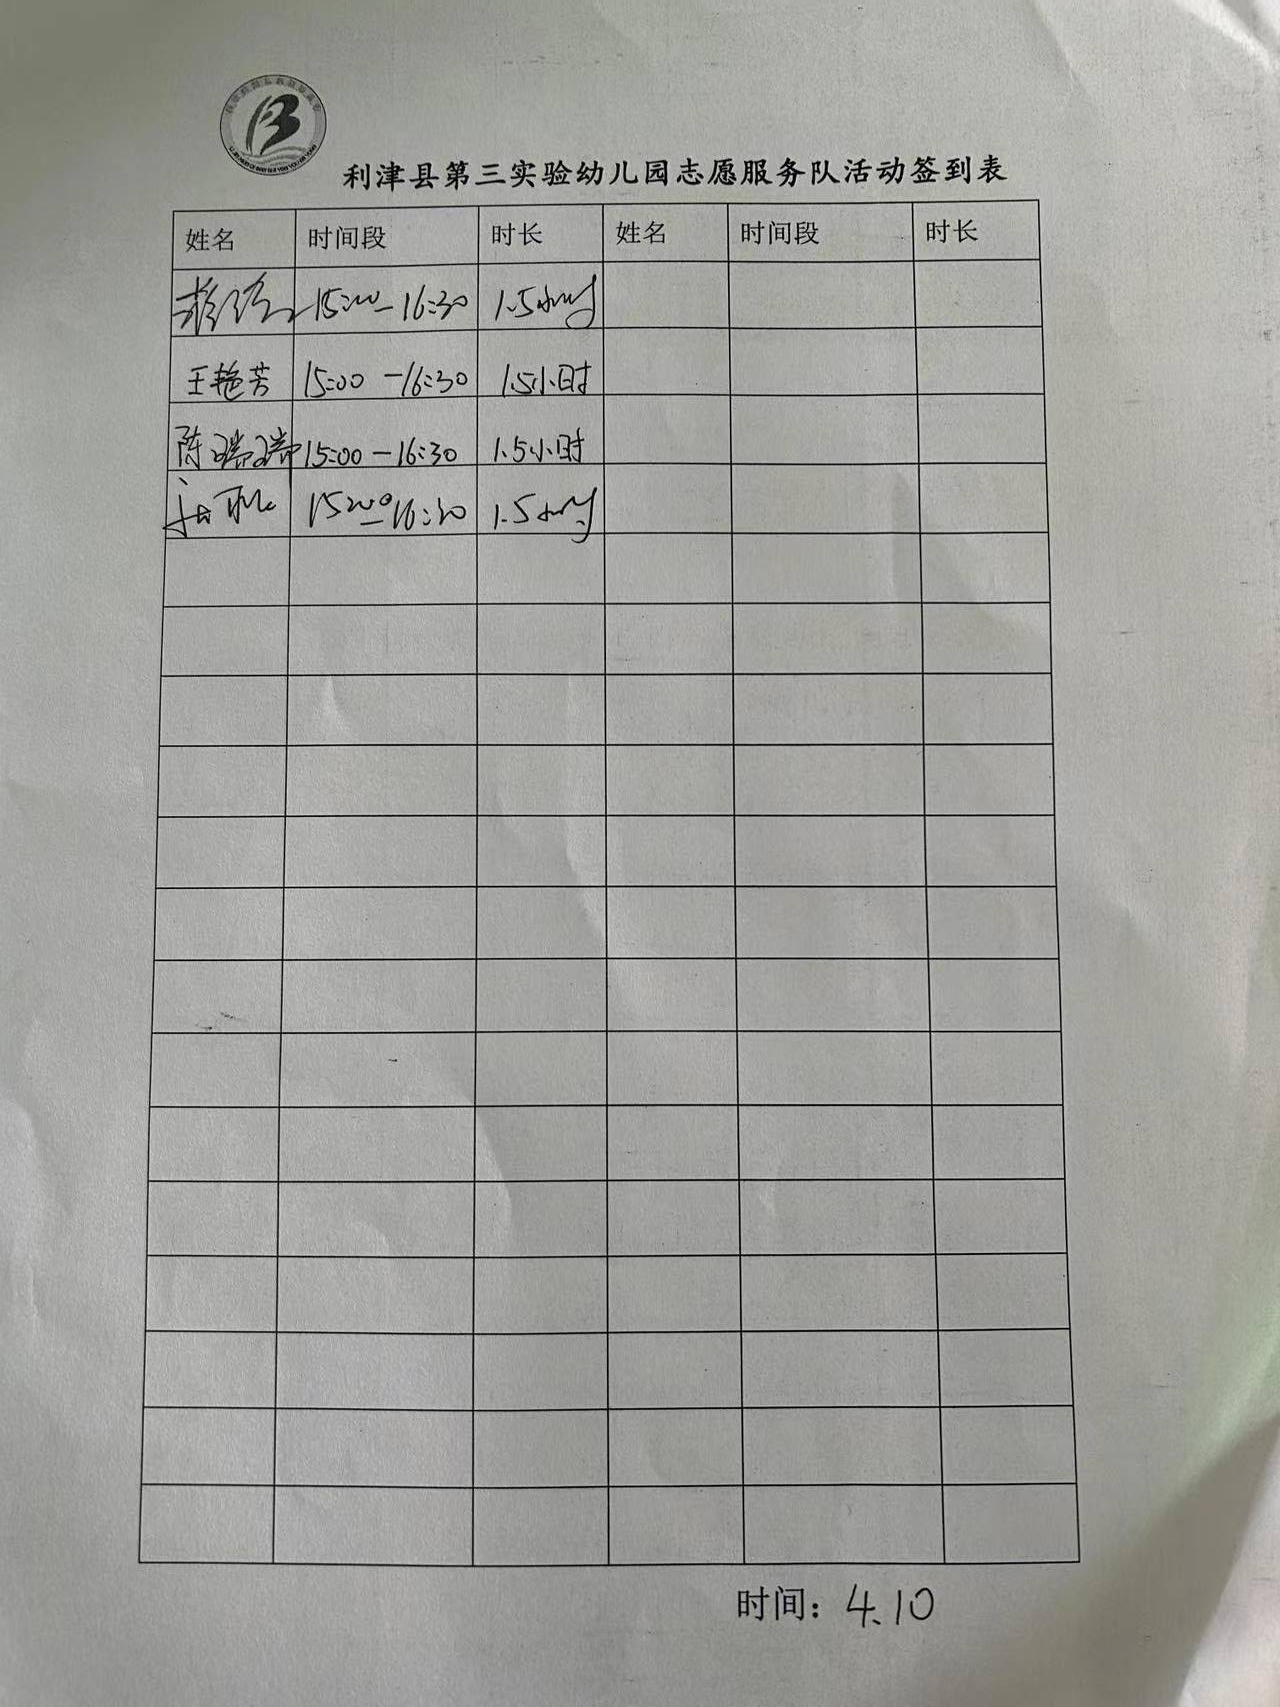 利津县第三实验幼儿园志愿服务队活动签到表
姓名 时间段 时长 姓名 时间段 时长
15:00-16:30 1.5小时
王艳芳 15:00-16:30 1.5小时
陈瑞瑞 15:00-16:30 1.5小时
15:00-16:30 1.5小时
时间：4.10